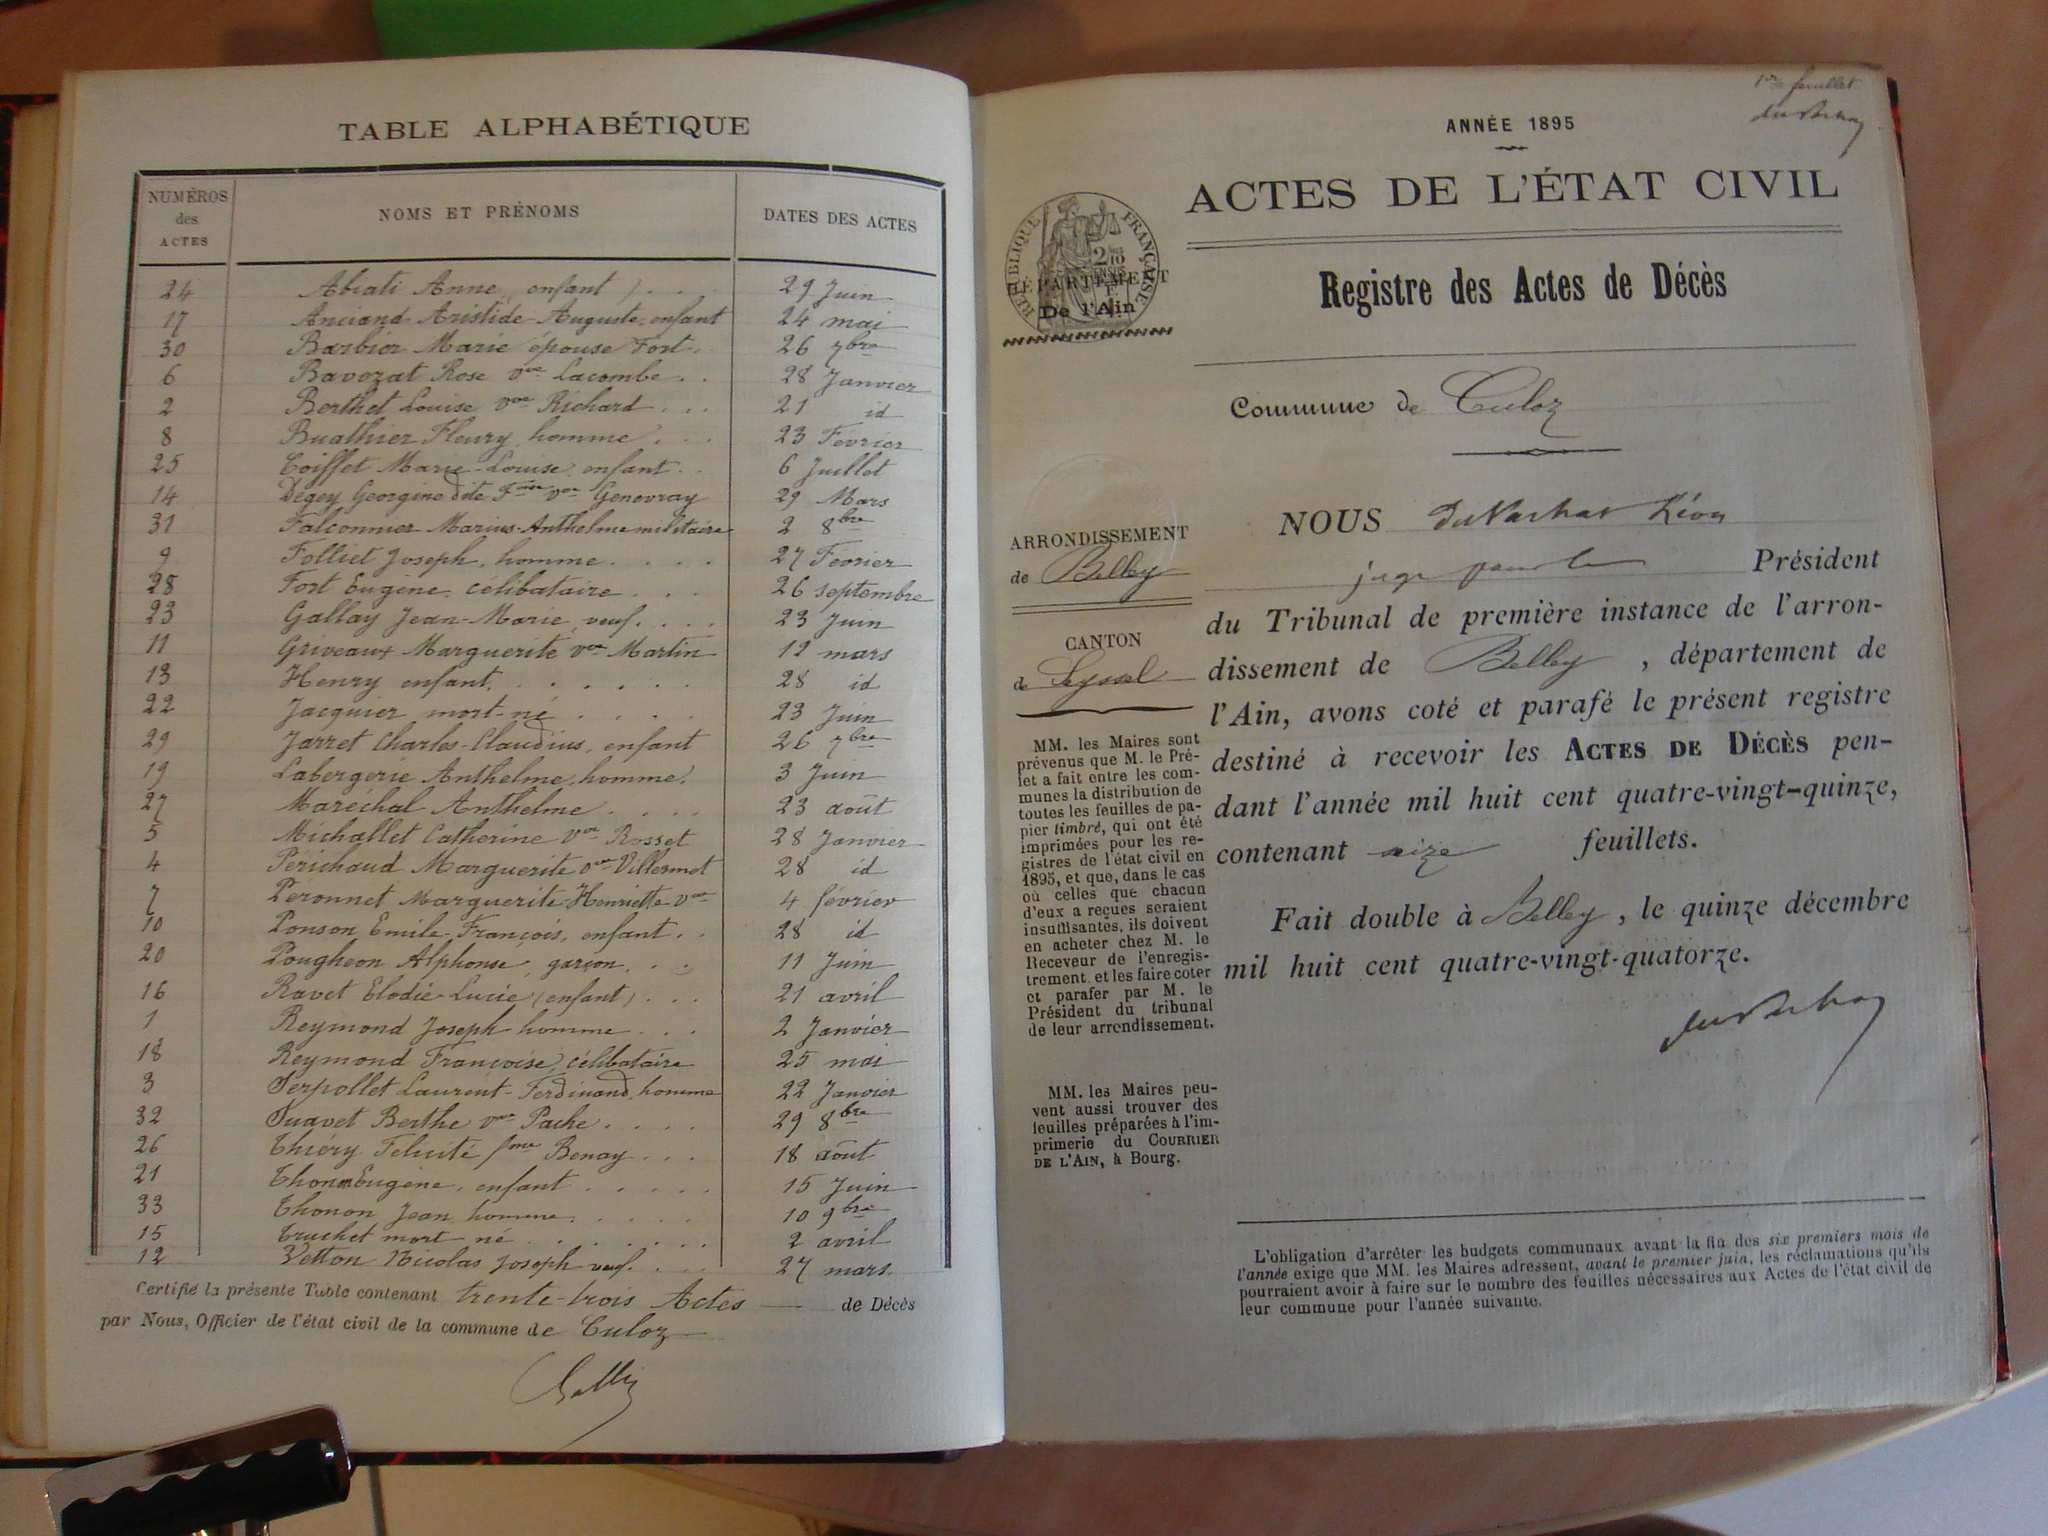 TABLE ALPHABÉTIQUE
NUMÉROS des ACTES NOMS ET PRÉNOMS DATES DES ACTES
24 Abiati Anne (enfant) . . . 29 Juin
17 Anciand Aristide-Auguste, enfant 24 mai
30 Barbier Marie épouse Fort. 26 7bre
6 Bavozat Rose vve Lacombe . . 28 Janvier
2 Berthet Louise vve Richard . . . 21 id
8 Buathier Fleury, homme . . . 23 Février
25 Coiffet Marie-Louise, enfant . . 6 Juillet
14 Dégey Georgine dite vve Genevray 29 Mars
31 Falconnier Marius-Anthelme militaire 2 8bre
9 Folliet Joseph, homme . . . . 27 Février
28 Fort Eugène, célibataire . . . 26 septembre
23 Gallay Jean-Marie, veuf. . . . 23 Juin
11 Griveaux Marguerite vve Martin 12 mars
13 Henry enfant. . . . . . . 28 id
22 Jacquier mort-né . . . . 23 Juin
29 Jarret Charles-Claudius, enfant 26 7bre
19 Labergerie Anthelme, homme. 3 Juin
27 Maréchal Anthelme . . . . 23 août
5 Michallet Catherine vve Rosset 28 Janvier
4 Périchaud Marguerite vve Villermet 28 id
7 Peronnet Marguerite Henriette vve 4 février
10 Ponson Emile-François, enfant . . 28 id
20 Pougheon Alphonse, garçon. . . 11 Juin
16 Ravet Elodie-Lucie (enfant) . . . 21 avril
1 Reymond Joseph homme . . . 2 Janvier
18 Reymond Françoise, célibataire 25 mai
3 Serpollet Laurent-Ferdinand, homme 22 Janvier
32 Suavet Berthe vve Pache . . . . 29 8bre
26 Thiéry Félicité fme Benay . . . 18 août
21 Eugène, enfant . . . . . 15 Juin
33 Thonon Jean, homme. . . . . 10 9bre
15 Truchet mort né . . . . . . . 2 avril
12 Vetton Nicolas Joseph veuf. . . . 27 mars.
Certifié la présente Table contenant trente-trois Actes — de Décès
par Nous, Officier de l'état civil de la commune de Culoz
1er feuillet
ANNÉE 1895
ACTES DE L'ÉTAT CIVIL
RÉPUBLIQUE FRANÇAISE
DÉPARTEMENT
De l'Ain
Registre des Actes de Décès
Commune de Culoz
ARRONDISSEMENT
de Belley
CANTON
de Seyssel
MM. les Maires sont
prévenus que M. le Pré-
fet a fait entre les com-
munes la distribution de
toutes les feuilles de pa-
pier timbré, qui ont été
imprimées pour les re-
gistres de l'état civil en
1895, et que, dans le cas
où celles que chacun
d'eux a reçues seraient
insuffisantes, ils doivent
en acheter chez M. le
Receveur de l'enregis-
trement et les faire coter
et parafer par M. le
Président du tribunal
de leur arrondissement.
MM. les Maires peu-
vent aussi trouver des
feuilles préparées à l'im-
primerie du COURRIER
DE L'AIN, à Bourg.
NOUS Léon
juge pour le Président
du Tribunal de première instance de l'arron-
dissement de Belley , département de
l'Ain, avons coté et parafé le présent registre
destiné à recevoir les ACTES DE DÉCÈS pen-
dant l'année mil huit cent quatre-vingt-quinze,
contenant feuillets.
Fait double à Belley, le quinze décembre
mil huit cent quatre-vingt-quatorze.
L'obligation d'arrêter les budgets communaux avant la fin des six premiers mois de
l'année exige que MM. les Maires adressent, avant le premier juin, les réclamations qu'ils
pourraient avoir à faire sur le nombre des feuilles nécessaires aux Actes de l'état civil de
leur commune pour l'année suivante.